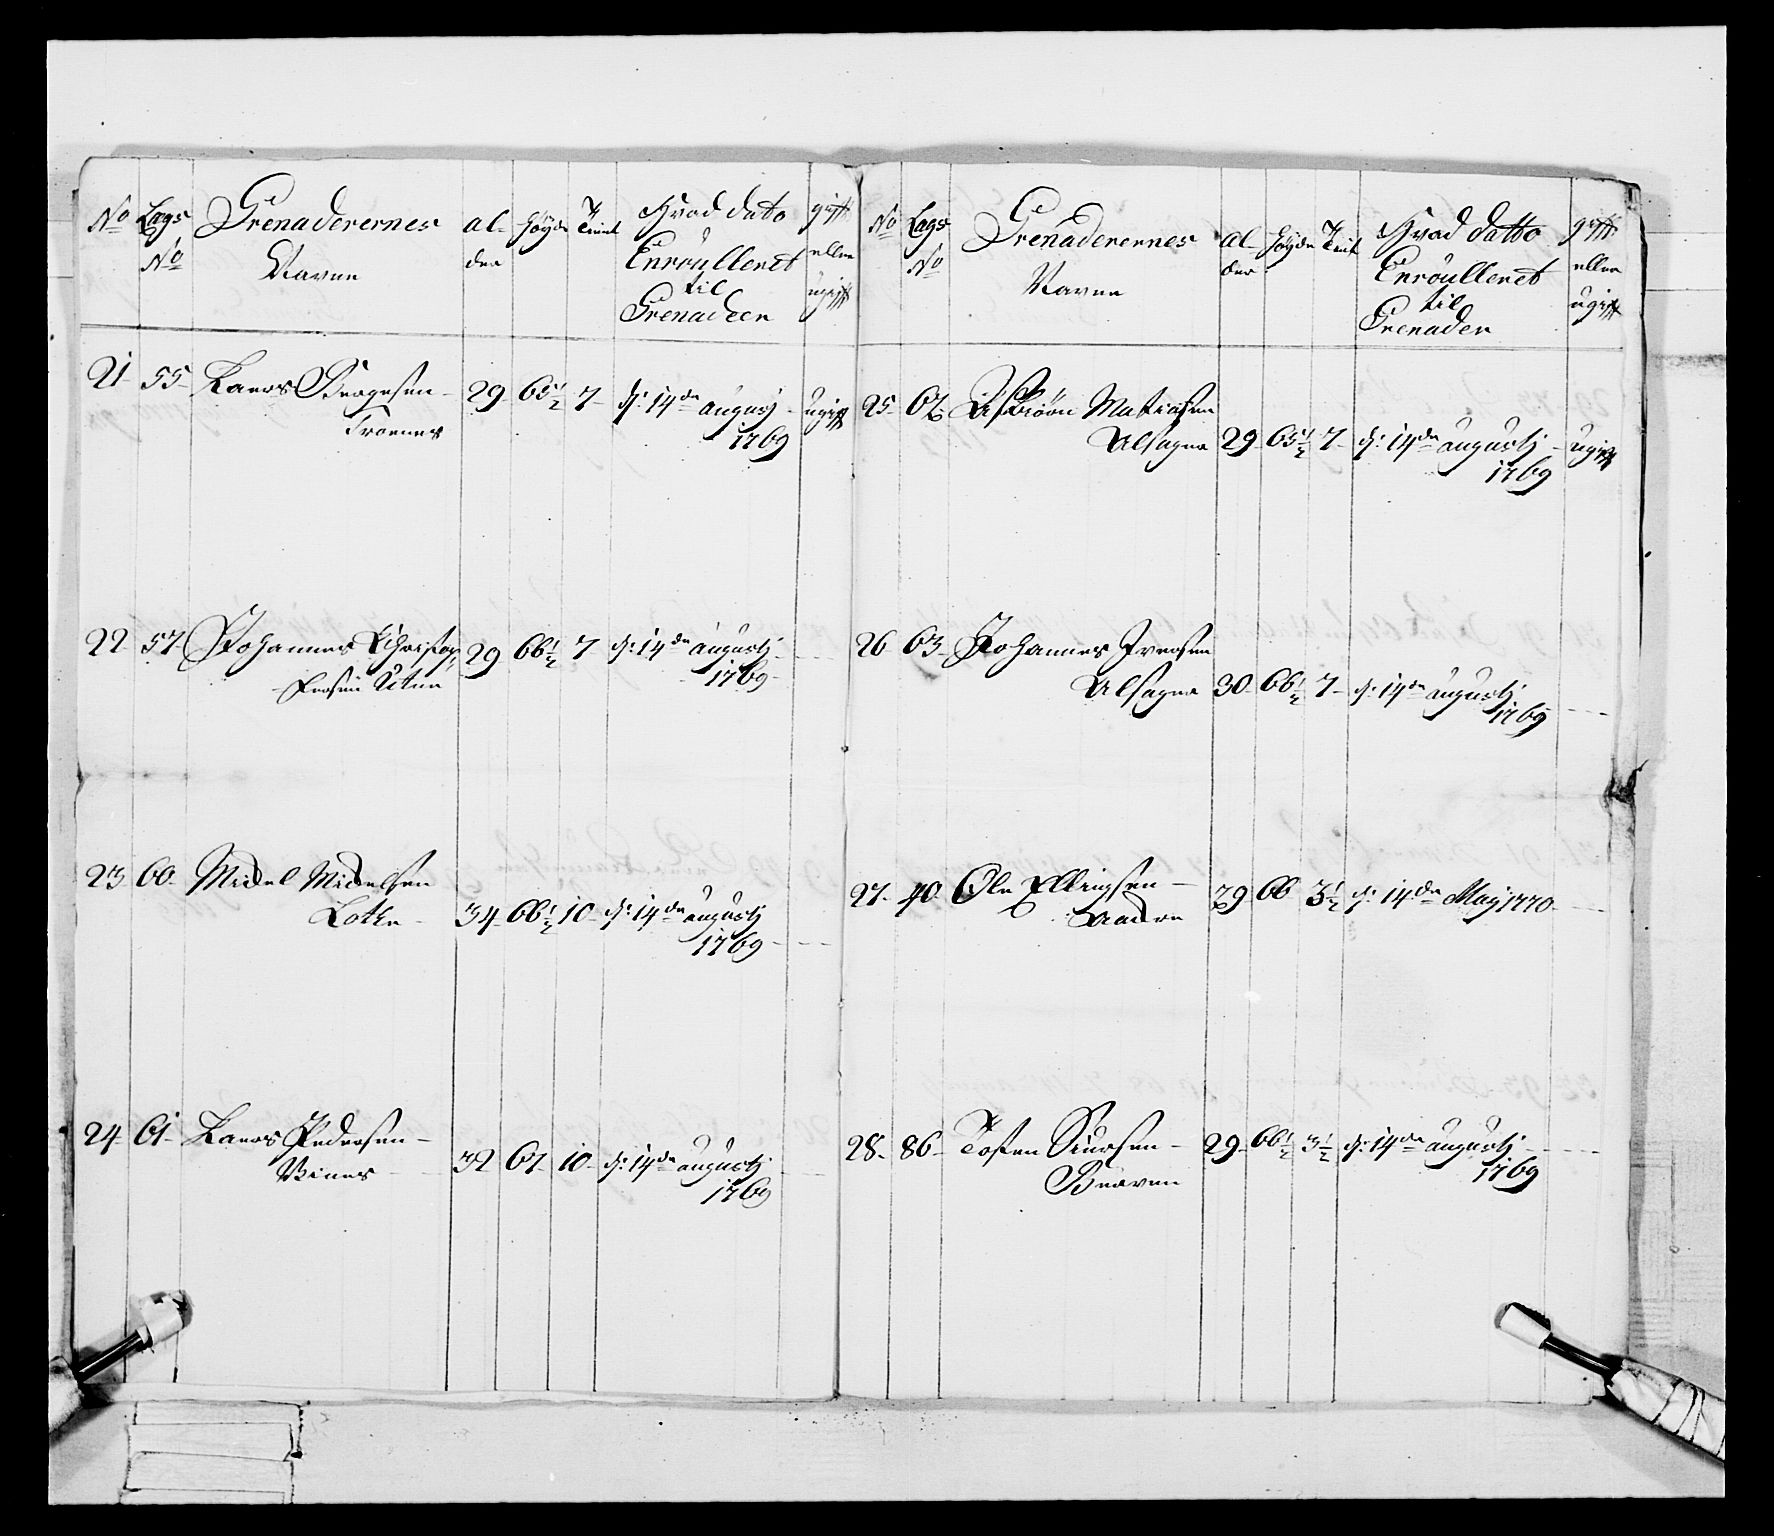 No Lags No Grenaderernes Navne al- der Høyde Tient Hvad dato Enroulleret til Grenadeer gift eller ugift
21 55 Lars Brynesen 29 65½ 7 d: 14de augustj ugift
1769
22 57 Johannes Christop- 29 66½ 7 d: 14de augustj
fersen 1769
23 60 Mickel Mickelsen
Lothe 34 66½ 10 d: 14de augustj
1769
24 61 Lars Pedersen
Vines 32 67 10 d: 14de augustj
1769
No Lags No Grenaderernes Navne al- der Høyde Tient Hvad datto Enroulleret til Grenader gift eller ugift
25 62 Asbiørn Matiasen
Alsager 29 65½ 7 d: 14de augustj ugift
1769
26 63 Johannes Iversen
Alsager 30 66½ 7 d: 14de augustj
1769
27 40 Ole Ellingsen
29 66 3½ d: 14de May 1770
28 86 Tosten Siursen 29 66½ 3½ d: 14de augustj
1769